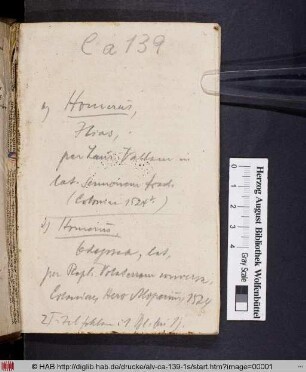 Ca 139
a) Homerus,
Ilias,
per Laur. Vallam in
lat. sermonem trad.
(Coloniae 1524)
b) Homerus
Odyssea, lat.
per Raph. Volaterranum conversa,
Coloniae, Hero Alopecius, 1524
Herzog August Bibliothek Wolfenbüttel
4 3 2 1
Gray Scale
© HAB http://diglib.hab.de/drucke/alv-ca-139-1s/start.htm?image=00001